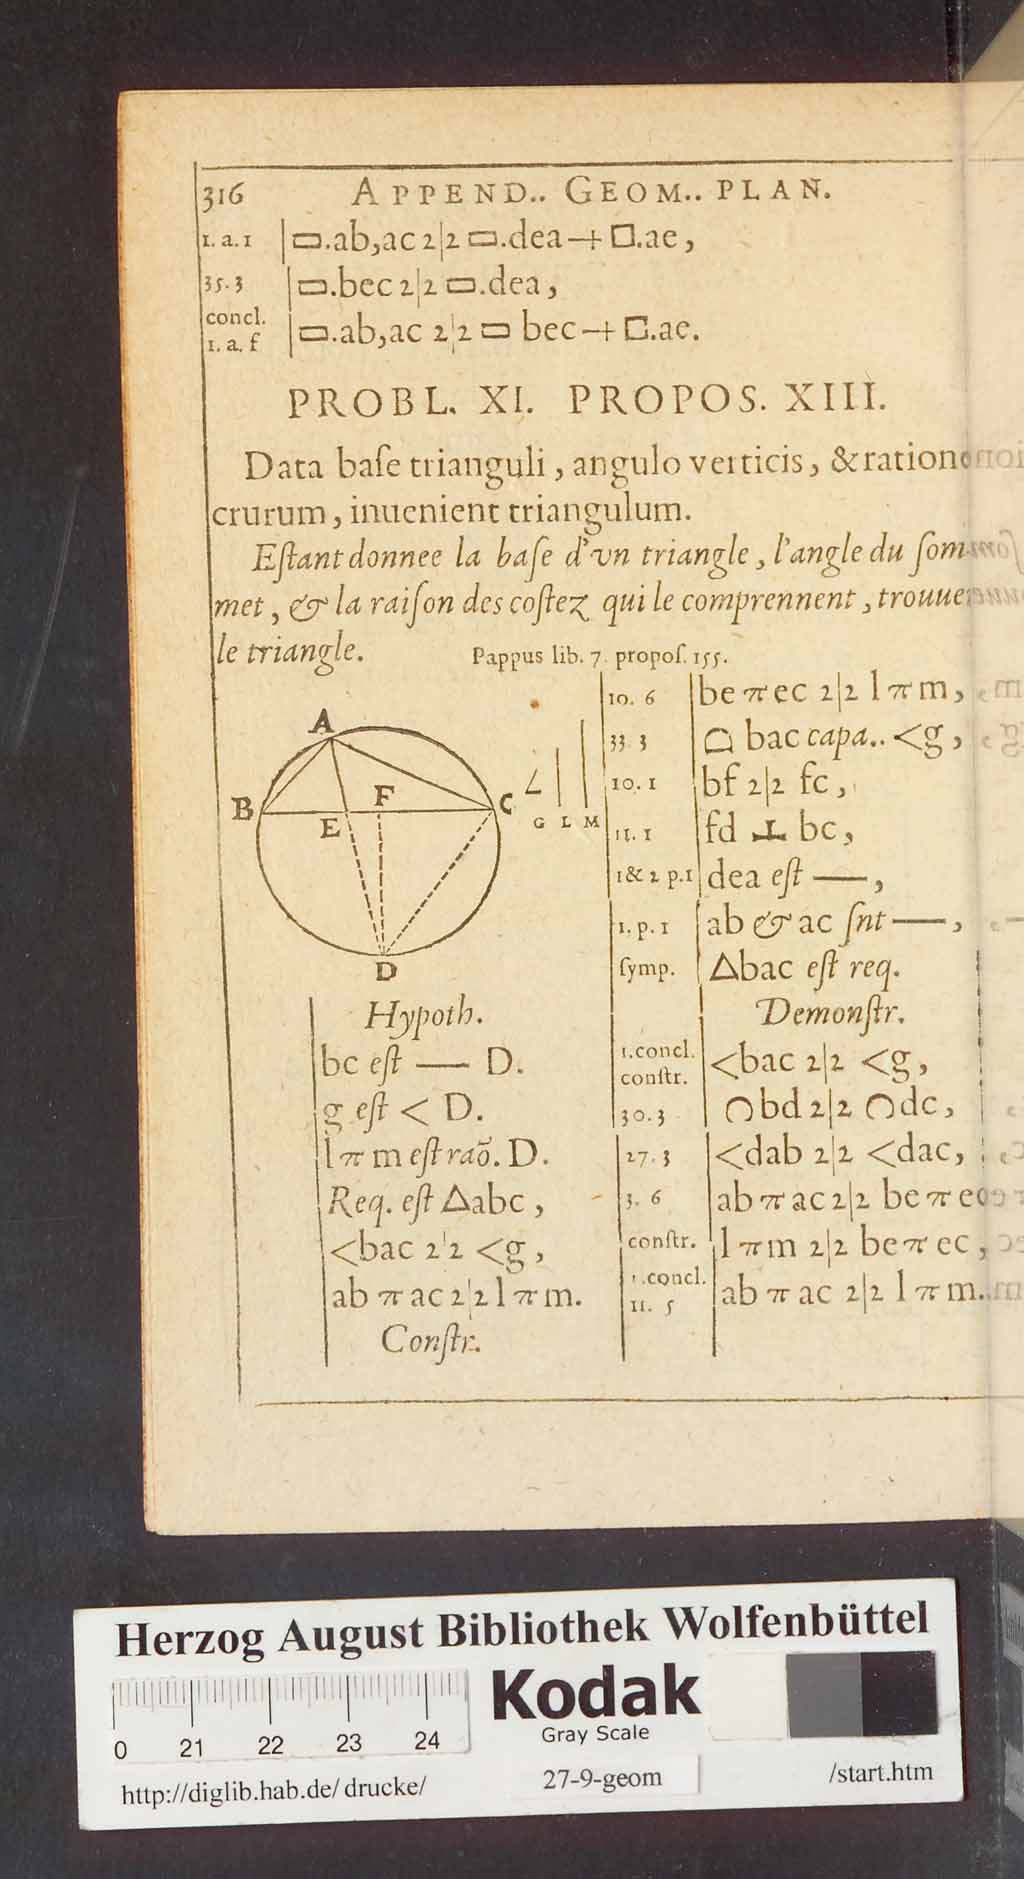 316 APPEND.. GEOM.. PLAN.
1. a. 1 | ▭.ab,ac 2|2 ▭.dea -+ □.ae,
35. 3 | ▭.bec 2|2 ▭.dea,
concl.
1. a. f | ▭.ab,ac 2|2 ▭ bec -+ □.ae.
PROBL. XI. PROPOS. XIII.
Data baſe trianguli, angulo verticis, & ratione
crurum, inuenient triangulum.
Eſtant donnee la baſe d'vn triangle, l'angle du ſom-
met, & la raiſon des coſtez qui le comprennent, trouuer
le triangle. Pappus lib. 7. propoſ. 155.
A
B
E
F
C
D
G L M
Hypoth.
bc eſt — D.
g eſt < D.
l π m eſt raõ. D.
Req. eſt △abc,
<bac 2|2 <g,
ab π ac 2|2 l π m.
Conſtr.
10. 6 | be π ec 2|2 l π m,
33. 3 | ⌓ bac capa.. <g,
10. 1 | bf 2|2 fc,
11. 1 | fd ⊥ bc,
1 & 2 p. 1 | dea eſt —,
1. p. 1 | ab & ac ſnt —,
ſymp. | △bac eſt req.
Demonſtr.
1. concl.
conſtr. | <bac 2|2 <g,
30. 3 | ⌒bd 2|2 ⌒dc,
27. 3 | <dab 2|2 <dac,
3. 6 | ab π ac 2|2 be π ec
conſtr. | l π m 2|2 be π ec,
1. concl.
11. 5 | ab π ac 2|2 l π m.
Herzog August Bibliothek Wolfenbüttel
0 21 22 23 24
Kodak
Gray Scale
http://diglib.hab.de/drucke/ 27-9-geom /start.htm